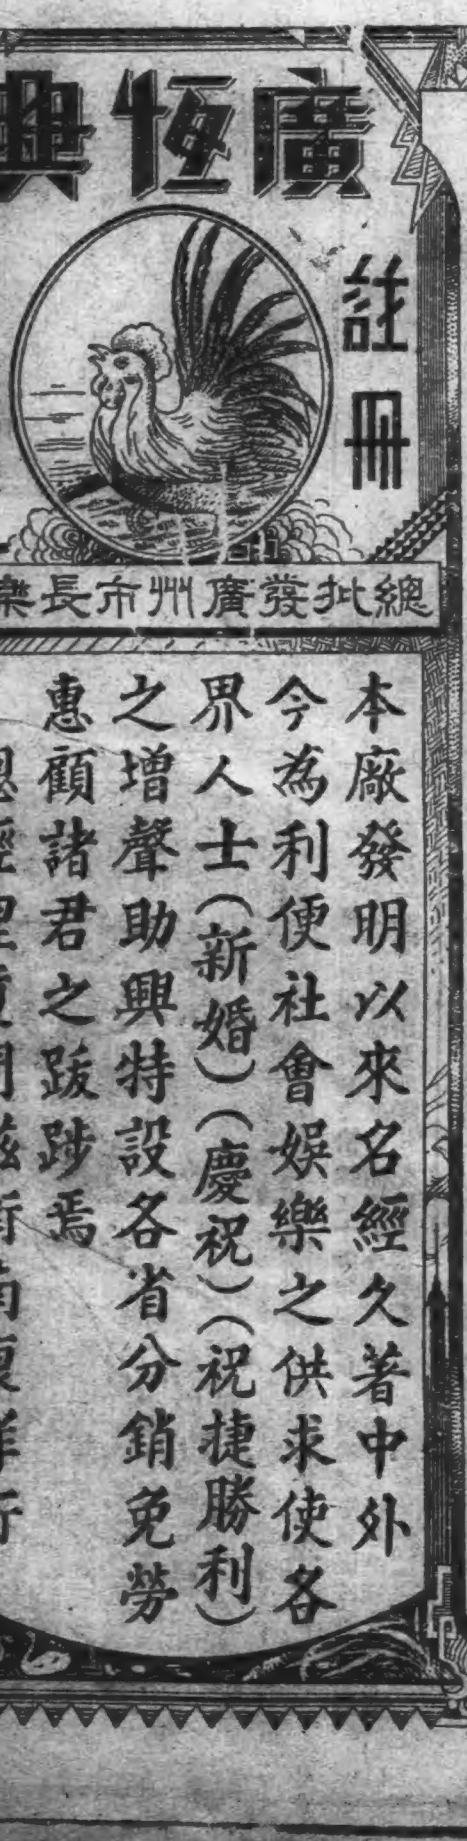 廣恆興
註冊
總批發廣州市長樂
本廠發明以來名經久著中外
今為利便社會娛樂之供求使各
界人士(新婚)(慶祝)(祝捷勝利)
之增聲助興特設各省分銷免勞
惠顧諸君之跋踄焉